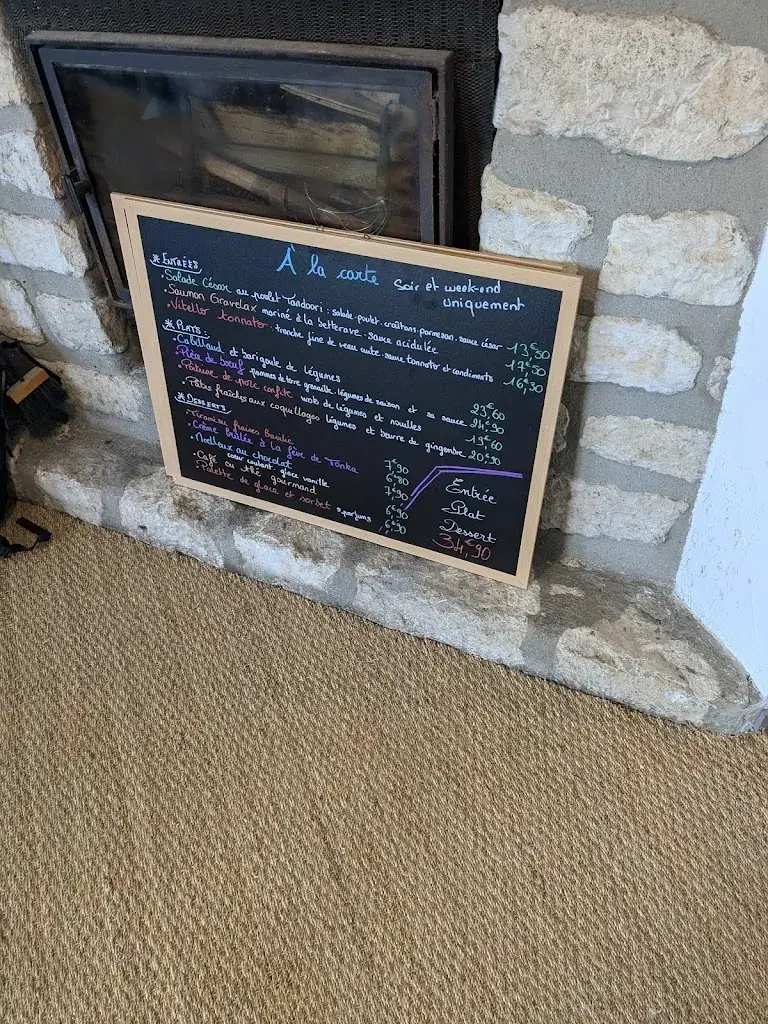 À la carte Soir et week-end
uniquement
* ENTRÉES
• Salade César au poulet Tandoori : salade. poulet. croûtons. parmesan. sauce césar 13,50
• Saumon Gravelax mariné à la betterave. sauce acidulée 17€50
• Vitello tonnato. tranche fine de veau cuite. sauce tonnato et condiments 16,50
* PLATS :
• Cabillaud et barigoule de légumes 23€60
• Pièce de boeuf pommes de terre grenaille. légumes de saison et sa sauce 24€90
• Poitrine de porc confite woks de légumes et nouilles 19€60
• Pâtes fraîches aux coquillages légumes et beurre de gingembre 20€90
* DESSERTS
• Tiramisu fraises basilic 7,90
• Crème brûlée à la fève de Tonka 6€80
• Moelleux au chocolat coeur coulant. glace vanille 7€90
• Café ou thé gourmand 6,90
• Palette de glace et sorbet parfums 6,50
Entrée
Plat
Dessert
34€90